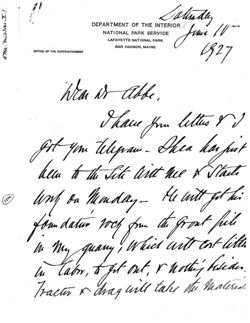 Saturday
DEPARTMENT OF THE INTERIOR
June
NATIONAL PARK SERVICE
LAFAYETTE NATIONAL PARK
BAR HARBOR, MAINE
1927
OFFICE OF THE SUPERINTENDENT
Dear Dr Abbe,
I have your letter & I
got your telegram. Shea has just
been to the Site with me & starts
work on Monday – He will get his
foundation rock from the Grout pile
in my quarry, which will cost little
in labor, to get out, & nothing besides.
Tractor & drag will take the material